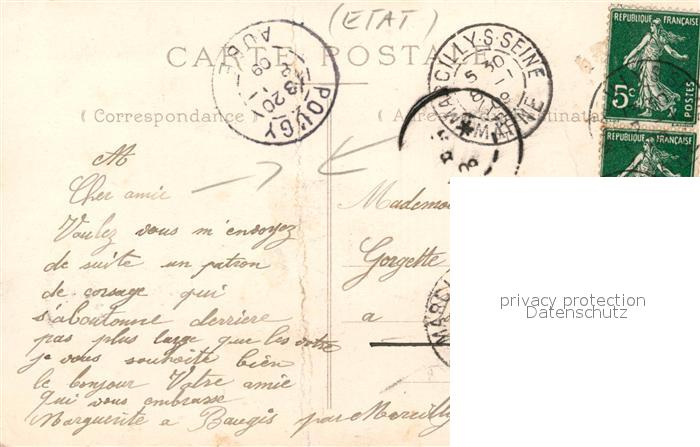 (ETAT)
CARTE POSTALE
( Correspondance )
POUGY
AUBE
MARCILLY-S-SEINE
MARNE
RÉPUBLIQUE FRANÇAISE
5c POSTES
RÉPUBLIQUE FRANÇAISE
Cher amie
Voulez vous m'envoyez
de suite un patron
de corsage qui
s'aboutonne derriere
pas plus large que les votre
je vous souhaite bien
le bonjour Votre amie
qui vous embrasse
Marguerite a Baugis par Marcilly
Mademo
Gorgette
a
privacy protection
Datenschutz